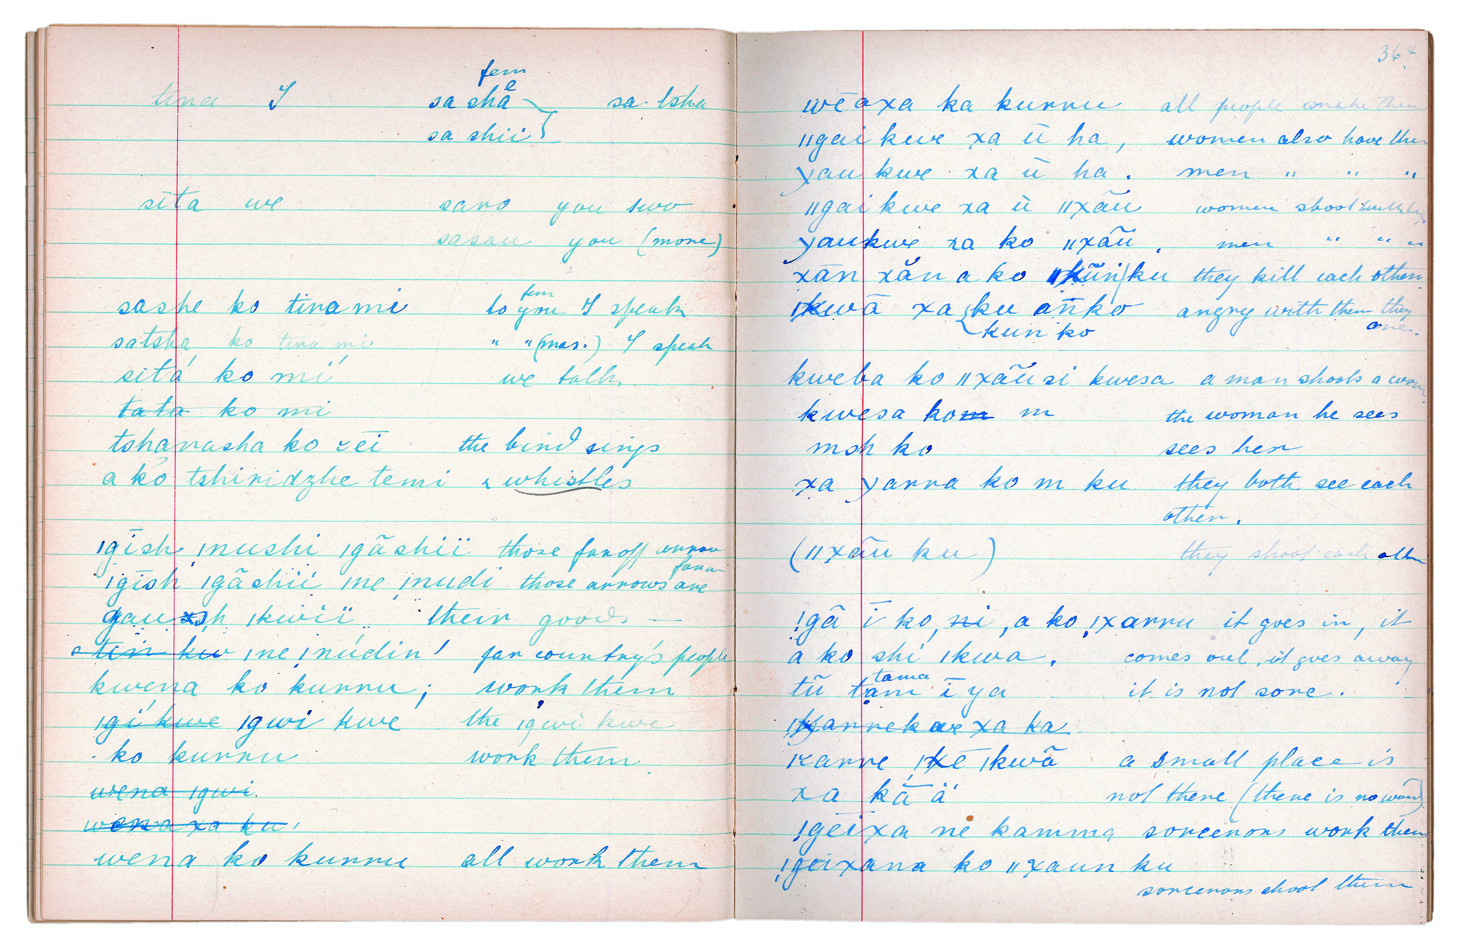 fem
tina I sa shâ e sa tsha
sa shii
sita we saro you two
sasau you (more)
fem
sashe ko tina mi to you I speak
satsha ko tina mi " " (mas.) I speak
sitá ko mí we talk
tata ko mi
tsharasha ko žēi the bird sings
a kó tshiridzhe temi & whistles
ǀgīsh ǀnushi ǀgãshiï those far off arrow
far
ǀgīsh ǀgãshií ǀne ǀnudi those arrows are
gau sh ǀkwiï their goods —
tin kw ǀne ǀnúdin! far country's people
kwena ko kurru; work them
ǀgi kwe ǀgwi kwe the ǀgwi kwe
ko kurru work them
wena ǀgwi.
wena xa ku.
wena ko kurru all work them
364
wēaxa ka kurru all people make them
ǁgai kwe xa ū ha, women also have them
yau kwe xa ū ha. men " " "
ǁgai kwe xa ū ǁxãu women shoot
yaukwe xa ko ǁxãu. men " " "
xān xãn a ko ku they kill each other
ǀkwā xa ku añko angry with them they
kun ko are.
kweba ko ǁxãu si kwesa a man shoots a
kwesa kom m the woman he sees
msh ko sees her
xa yarra ko m ku they both see each
other.
(ǁxãu ku) they shoot each other
ǃgā ī ko, ni, a ko ǃxarru it goes in, it
á ko shi ǀkwa. comes out, it goes away
tama
tū tam ī ya it is not sore.
xa ka
karre ǀkwã a small place is
xa kā ä not there (there is no wind)
ǃgēixa ne kamma sorcerors work them
ǃgeixana ko ǁxaun ku
sorcerors shoot them